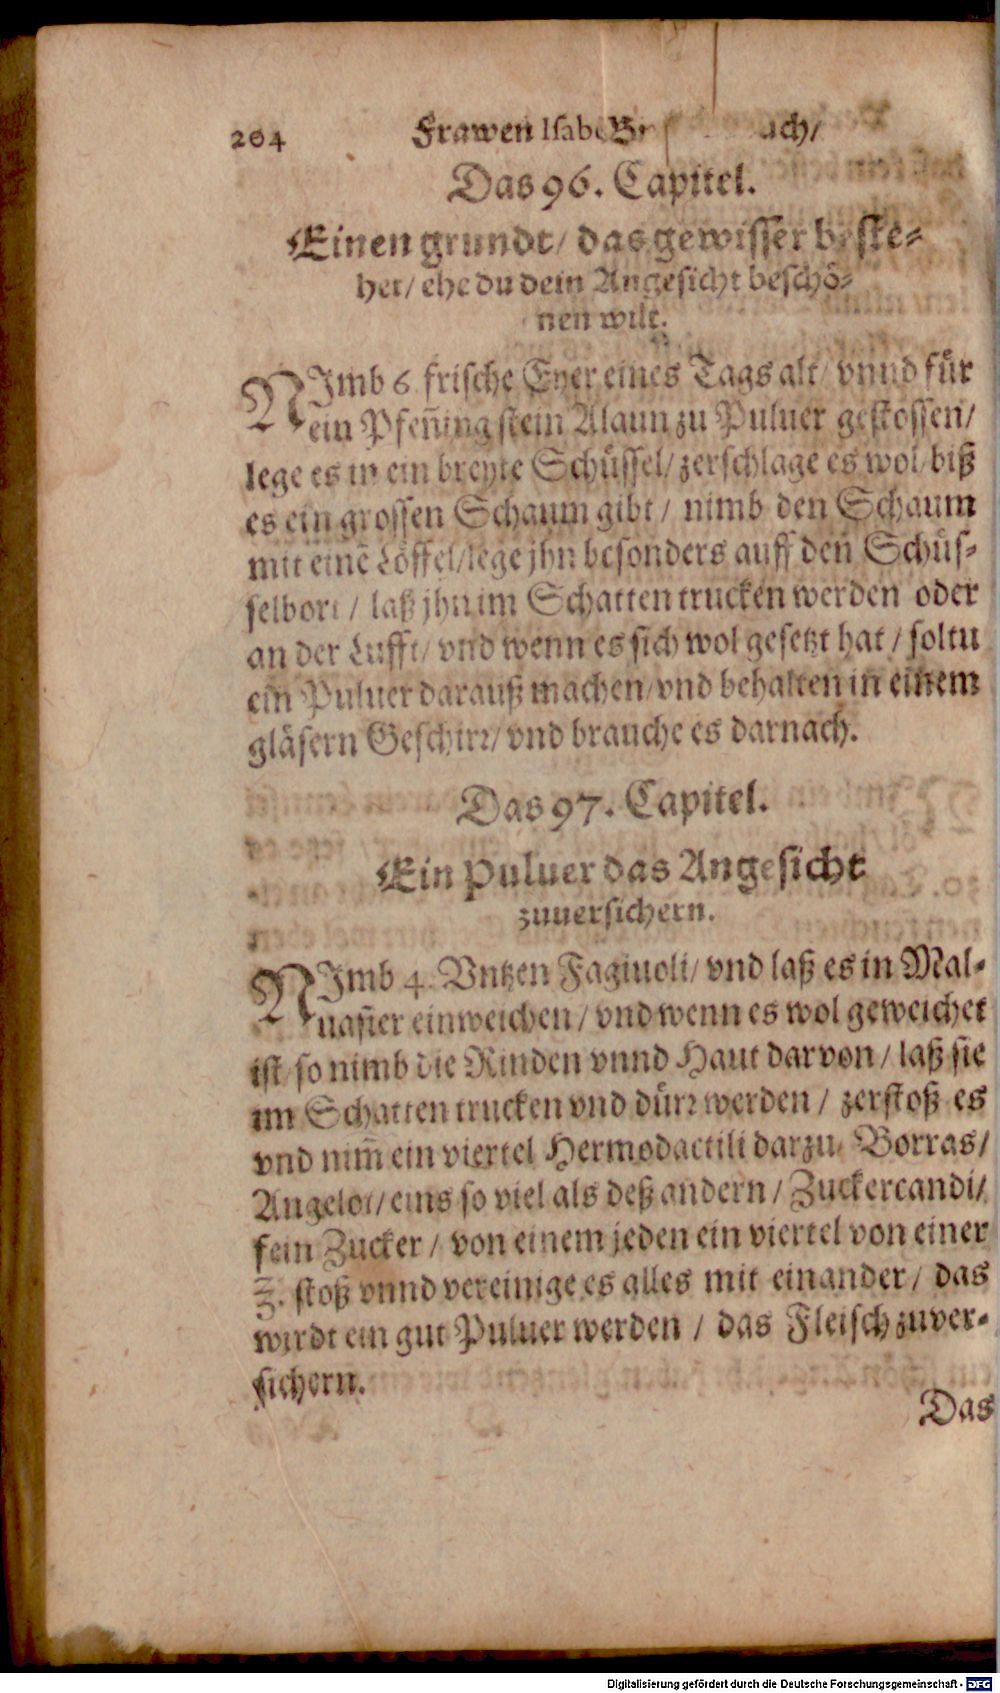 204 Frawen Isabe B ch/
Das 96. Capitel.
Einen grundt/ das gewisser beste-
het/ ehe du dein Angesicht beschö-
nen wilt.
NImb 6 frische Eyer eines Tags alt/ vnnd für
ein Pfeñing stein Alaun zu Puluer gestossen/
lege es in ein breyte Schüssel/ zerschlage es wol/ biß
es ein grossen Schaum gibt/ nimb den Schaum
mit einẽ Löffel/ lege jhn besonders auff den Schüs-
selbort/ laß jhn im Schatten trucken werden oder
an der Lufft/ vnd wenn es sich wol gesetzt hat/ soltu
ein Puluer darauß machen/ vnd behalten in einem
gläsern Geschirr/ vnd brauche es darnach.
Das 97. Capitel.
Ein Puluer das Angesicht
zuuersichern.
NImb 4. Vntzen Fagiuoli/ vnd laß es in Mal-
uasier einweichen/ vnd wenn es wol geweichet
ist/ so nimb die Rinden vnnd Haut darvon/ laß sie
im Schatten trucken vnd dürr werden/ zerstoß es
vnd nim̃ ein viertel Hermodactili darzu/ Borras/
Angelot/ eins so viel als deß andern/ Zuckercandi/
fein Zucker/ von einem jeden ein viertel von einer
℥. stoß vnnd vereinige es alles mit einander/ das
wirdt ein gut Puluer werden/ das Fleisch zuver-
sichern.
Das
Digitalisierung gefördert durch die Deutsche Forschungsgemeinschaft - DFG